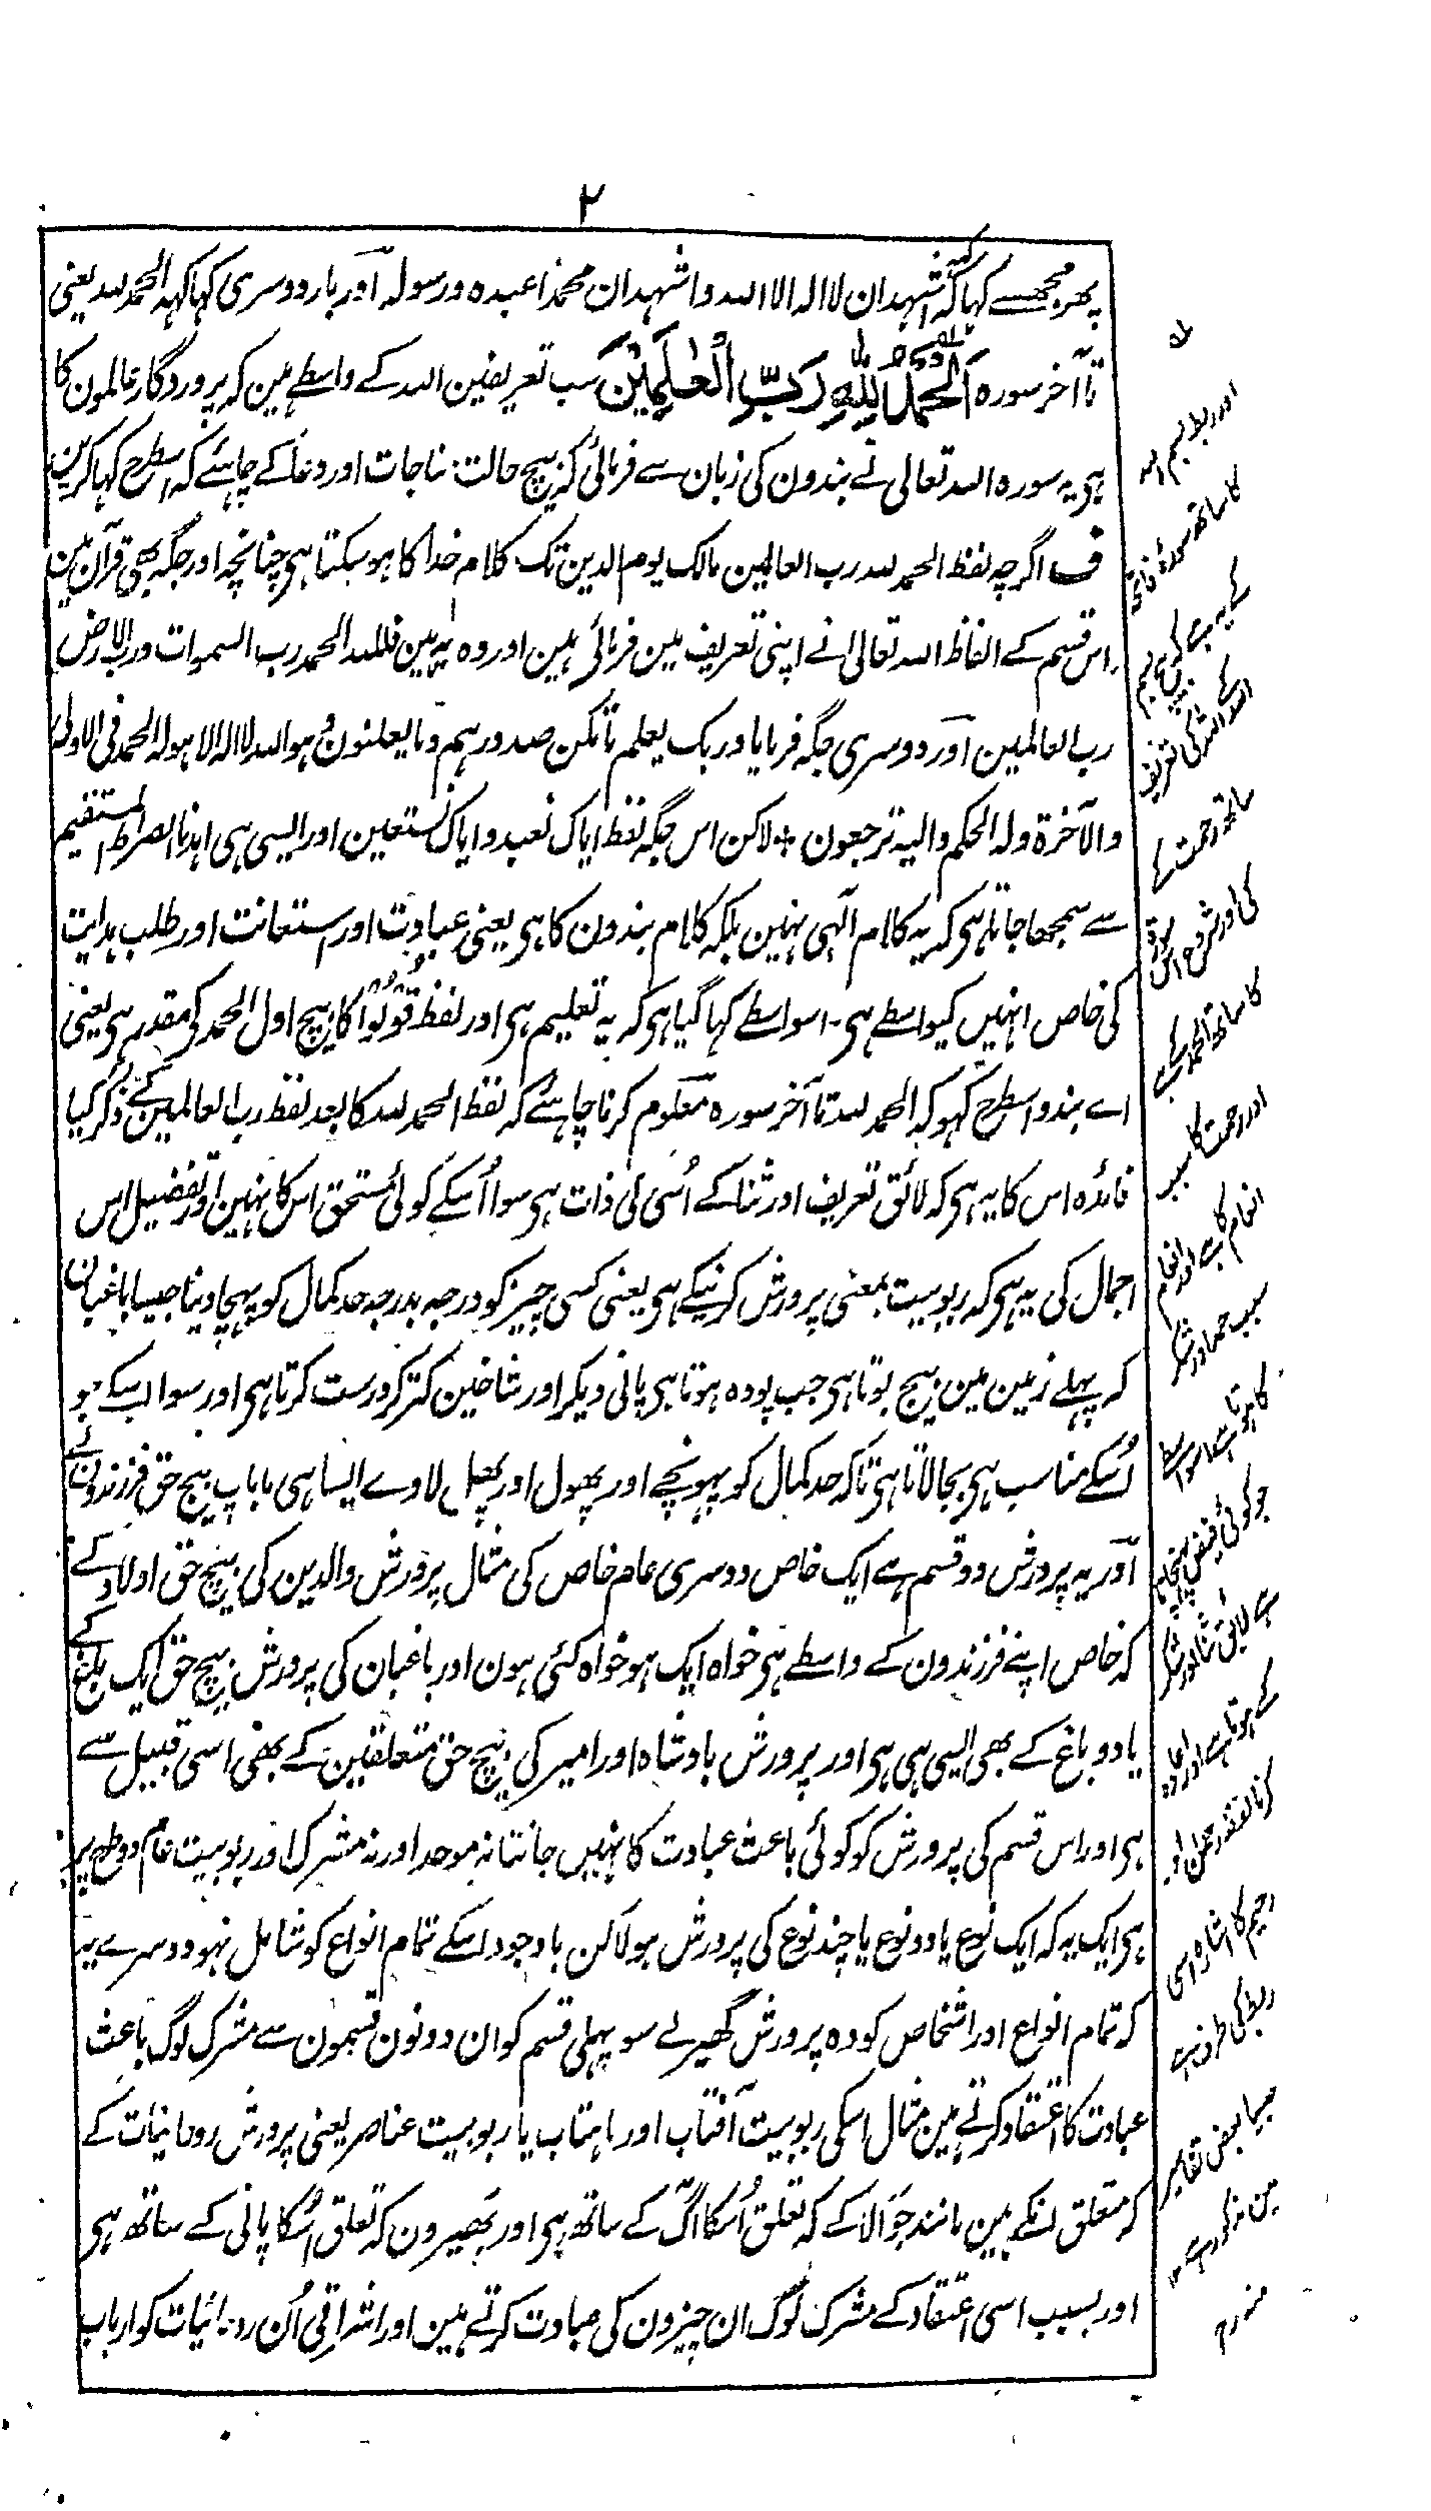 ۲
پھر مجھسے کہا کہہ اشہد ان لا الہ الا اللہ و اشہد ان محمدا عبدہ و رسولہ اور بار دوسری کہا کہہ الحمد للہ یعنی
تا آخر سورہ اَلْحَمْدُ لِلّٰهِ رَبِّ الْعٰلَمِیْنَ سب تعریفین اللہ کے واسطے ہین کہ پروردگار عالمون کا
ہی یہ سورہ اللہ تعالی نے بندون کی زبان سے فرمائی کہ بیچ حالت مناجات اور دعا کے چاہئے کہ اسطرح کہا کرین
ف اگرچہ لفظ الحمد للہ رب العالمین مالک یوم الدین تک کلام خدا کا ہو سکتا ہی چنانچہ اور جگہ بھی قرآن مین
اس قسم کے الفاظ اللہ تعالی نے اپنی تعریف مین فرمائی ہین اور وہ یہ ہین فللہ الحمد رب السموات ورب الارض
رب العالمین اور دوسری جگہ فرمایا وربک یعلم ماتکن صدورہم وما یعلنون وہو اللہ لا الہ الا ہو لہ الحمد فی الاولی
والآخرۃ ولہ الحکم والیہ ترجعون * لاکن اس جگہ لفظ ایاک نعبد وایاک نستعین اور ایسی ہی اہدنا الصراط المستقیم
سے سمجھا جاتا ہی کہ یہ کلام الٰہی نہین بلکہ کلام بندون کا ہی یعنی عبادت اور استعانت اور طلب ہدایت
کی خاص انہیں کیواسطے ہی۔ اسواسطے کہا گیا ہی کہ یہ تعلیم ہی اور لفظ قُوْلُوْا کا بیچ اول الحمد کی مقدر ہی یعنی
اے بندو اسطرح کہو کہ الحمد للہ تا آخر سورہ معلوم کرنا چاہئے کہ لفظ الحمد للہ کا بعد لفظ رب العالمین کے ذکر کیا
فائدہ اس کا یہ ہی کہ لائق تعریف اور ثنا کے اُسی کی ذات ہی سوا اُسکے کوئی مستحق اس کا نہین اور تفضیل اس
اجمال کی یہ ہی کہ ربوبیت بمعنی پرورش کرنیکے ہی یعنی کسی چیز کو درجہ بدرجہ حد کمال کو پہنچا دینا جیسا باغبان
کہ پہلے زمین مین بیج بوتا ہی جب پودہ ہوتا ہی پانی دیکر اور شاخین کتر کر درست کرتا ہی اور سوا اسکے جو
اُسکے مناسب ہی بجا لاتا ہی تاکہ حد کمال کو پہونچے اور پھول اور پھل لاوے ایسا ہی ماباپ بیچ حق فرزندون کے
اور یہ پرورش دو قسم ہے ایک خاص دوسری عام خاص کی مثال پرورش والدین کی بیچ حق اولاد کے
کہ خاص اپنے فرزندون کے واسطے ہی خواہ ایک ہو خواہ کئی ہون اور باغبان کی پرورش بیچ حق ایک باغ کے
یا دو باغ کے بھی ایسی ہی ہی اور پرورش بادشاہ اور امیر کی بیچ حق متعلقین کے بھی اسی قبیل سے
ہی اور اس قسم کی پرورش کو کوئی باعث عبادت کا نہیں جانتا نہ موحد اور نہ مشرک اور ربوبیت عام دو طرح پر
ہی ایک یہ کہ ایک نوع یا دو نوع یا چند نوع کی پرورش ہو لاکن باوجود اسکے تمام انواع کو شامل نہو دوسرے یہ
کہ تمام انواع اور اشخاص کو وہ پرورش گھیرلے سو پہلی قسم کو ان دونون قسمون سے مشرک لوگ باعث
عبادت کا اعتقاد کرتے ہین مثال اسکی ربوبیت آفتاب اور ماہتاب یا ربوبیت عناصر یعنی پرورش روحانیات کے
کہ متعلق انکے ہین مانند جوالا کے کہ تعلق اُسکا آگ کے ساتھ ہی اور بھیرون کہ تعلق اُسکا پانی کے ساتھ ہی
اور بسبب اسی اعتقاد کے مشرک لوگ ان چیزون کی عبادت کرتے ہین اور اشراقی اُن روحانیات کو ارباب
اور ربط بسم اللہ
کا ساتھ سورہ فاتحہ
کے یہ ہے کہ بسم
اللہ اللہ کی تعریف
ساتھ رحمت
کی اور شروع اس سورۃ
کا ساتھ الحمد کے ہے
اور رحمت کا سبب
انعام کا ہے اور انعام
سبب حمد اور شکر
کا ہوتا ہے اسواسطے
جو کوئی فیض پہنچاوے
ہے لائق ثنا اور شکر
کے ہوتا ہے اور اعادہ
کرنا لفظ رحمن اور
رحیم کا اشارہ اسی
ربط کی طرف ہے
جیسا بعض تفاسیر
مین مذکور ہے